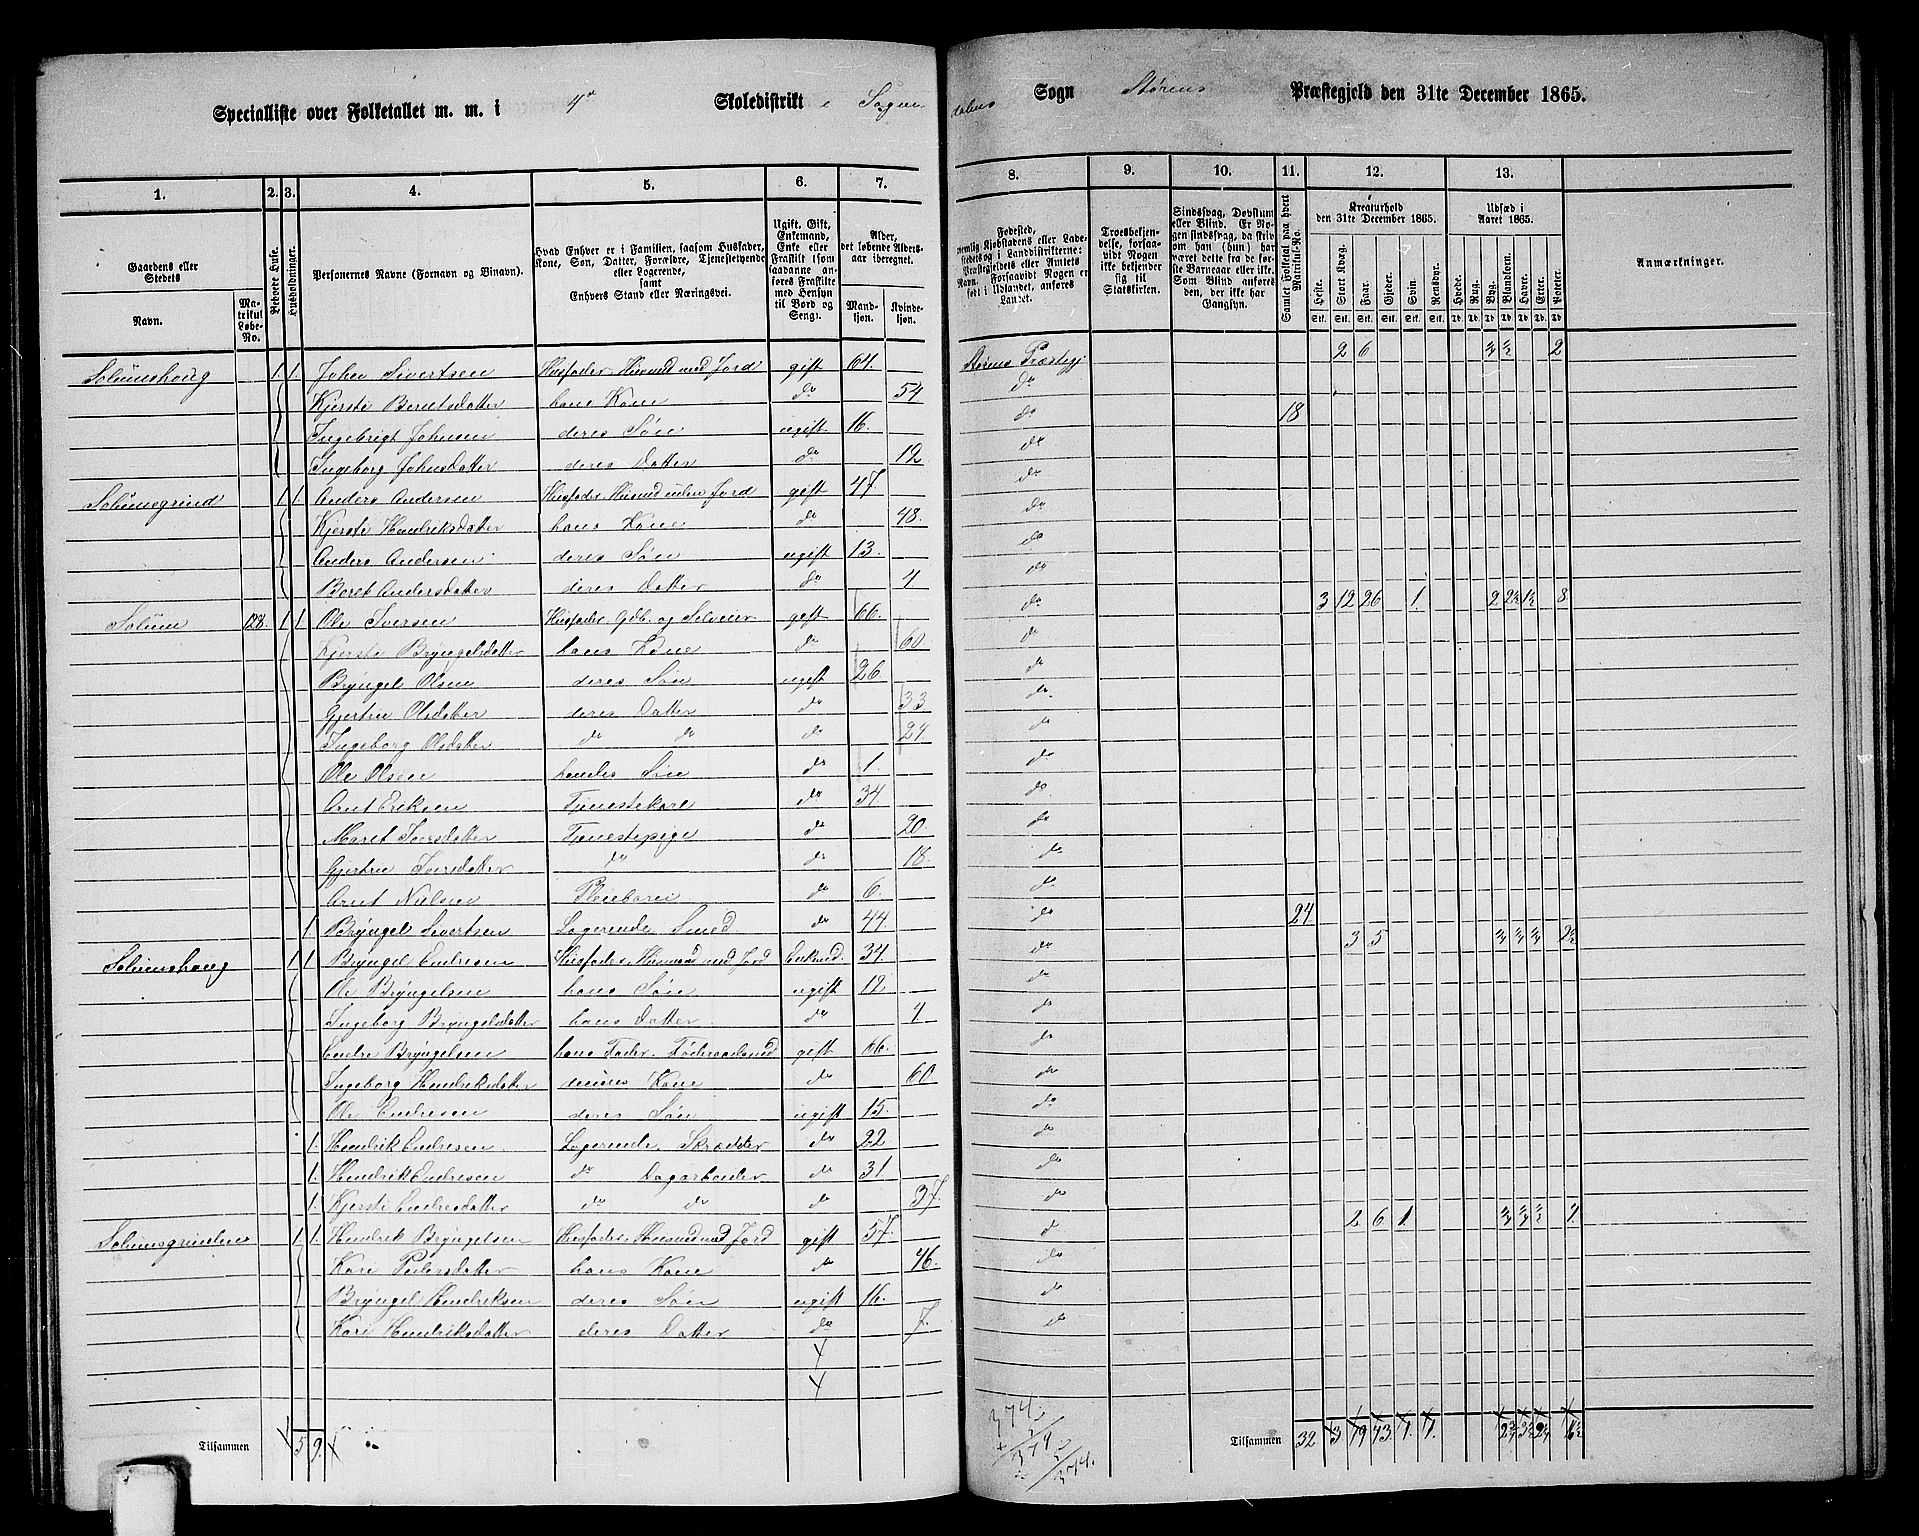 Specialliste over Folketallet m. m. i 4de Skoledistrikt i Sogne
dalens Sogn Störens Præstegjeld den 31te December 1865.
1. 2. 3. 4. 5. 6. 7. 8. 9. 10. 11. 12. 13.
Gaardens eller Stedets
Navn.
Matrikul Løbe-No.
Bebyede Huse.
Husholdninger.
Personernes Navne (Fornavn og Tilnavn).
Hvad Enhver er i Familien, saasom Husfader, Kone, Søn, Datter, Forældre, Tjenestetyende eller Logerende, samt Enhvers Stand eller Næringsvei.
Ugift, Gift, Enkemand, Enke eller Fraskilt (som saadanne anføres Fraskilte med Hensyn til Bord og Seng).
Alder, det løbende Alders-aar iberegnet.
Mandkjøn. Kvindekjøn.
Fødested,
Troesbekjendelse, forsaavidt Nogen ikke bekjender sig til Statskirken.
Sindssvag, Døvstum eller Blind.
Kreaturhold den 31te December 1865.
Heste. Stort Kvæg. Faar. Gjeder. Svin. Rensdyr.
Udsæd i Aaret 1865.
Hvede. Rug. Byg. Blandkorn. Havre. Erter. Poteter.
Anmærkninger.
Solumshoug 1. 1. John Sivertsen Husfader Husmd med Jord gift 64. Störens Præstegj 2 6 ¾ ½ 2
Kjersti Berntsdatter hans Kone do 54 do
Ingebrigt Johnsen deres Søn ugift 16. do 18
Ingeborg Johnsdatter deres Datter do 12 do
Solumsgrind 1 1. Anders Andersen Husfader Husmd uden Jord gift 47 do
Kjersti Hendriksdatter hans Kone do 48. do
Anders Andersen deres Søn ugift 13. do
Beret Andersdatter deres Datter do 4 do
Solum 128. 1 1. Ole Iversen Husfader Gdb. og Selveier gift 66. do 3 12 26 1. 2 2½ 1½ 8
Kjersti Bryngelsdatter hans Kone do 60 do
Bryngel Olsen deres Søn ugift 26. do
Gjertrue Olsdatter deres Datter do 33 do
Ingeborg Olsdatter do do do 24 do
Ole Olsen hendes Søn do 1 do
Arnt Eriksen Tjenestekarl do 34. do
Maret Iversdatter Tjenestepige do 20. do
Gjertrue Iversdatter do do 18. do
Arnt Nielsen Pleiebarn do 6. do
1. Bryngel Sivertsen Logerende, Smed do 44 do 24
Solumshoug 1 1 Bryngel Endresen Husfader, Husmd med Jord Enkmd. 34. do 3 5 ¾ ¼ ¾ 2½
Ole Bryngelsen hans Søn ugift 12 do
Ingeborg Bryngelsdatter hans Datter do 4 do
Endre Bryngelsen hans Fader, Föderaadsmd gift 66. do
Ingeborg Hendriksdatter dennes Kone do 60 do
Ole Endresen deres Søn ugift 15. do
1. Hendrik Endresen Logerende, Skrædder do 22 do
1. Hendrik Endresen do Dagarbeider do 31 do
1. Kjersti Endresdatter do do do 37. do
Solumsgrinden 1 1. Hendrik Bryngelsen Husfader, Husmd med Jord gift 57. do 2 6 1.
Kari Pedersdatter hans Kone do 46. do
Bryngel Hendriksen deres Søn ugift 16. do
Kari Hendriksdatter deres Datter do 7. do
Tilsammen 5 9.
374.
374
374.
Tilsammen 32 3 19 43. 1. 1.